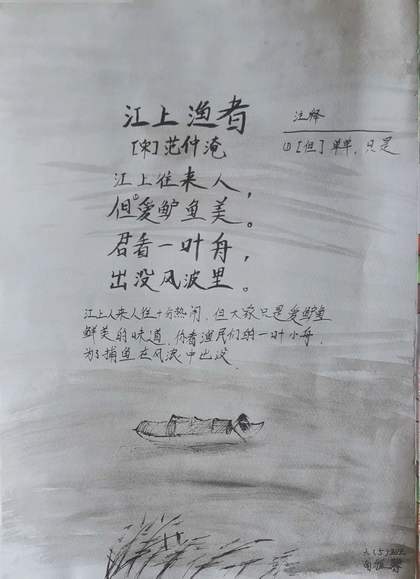 江上渔者
[宋]范仲淹
江上往来人，
但①愛鲈鱼美。
君看一叶舟，
出没风波里。
注释
①[但] 单单，只是
江上人来人往十分热闹，但大家只是爱鲈鱼
鲜美的味道，你看渔民们的一叶小舟，
为了捕鱼在风浪中出没。